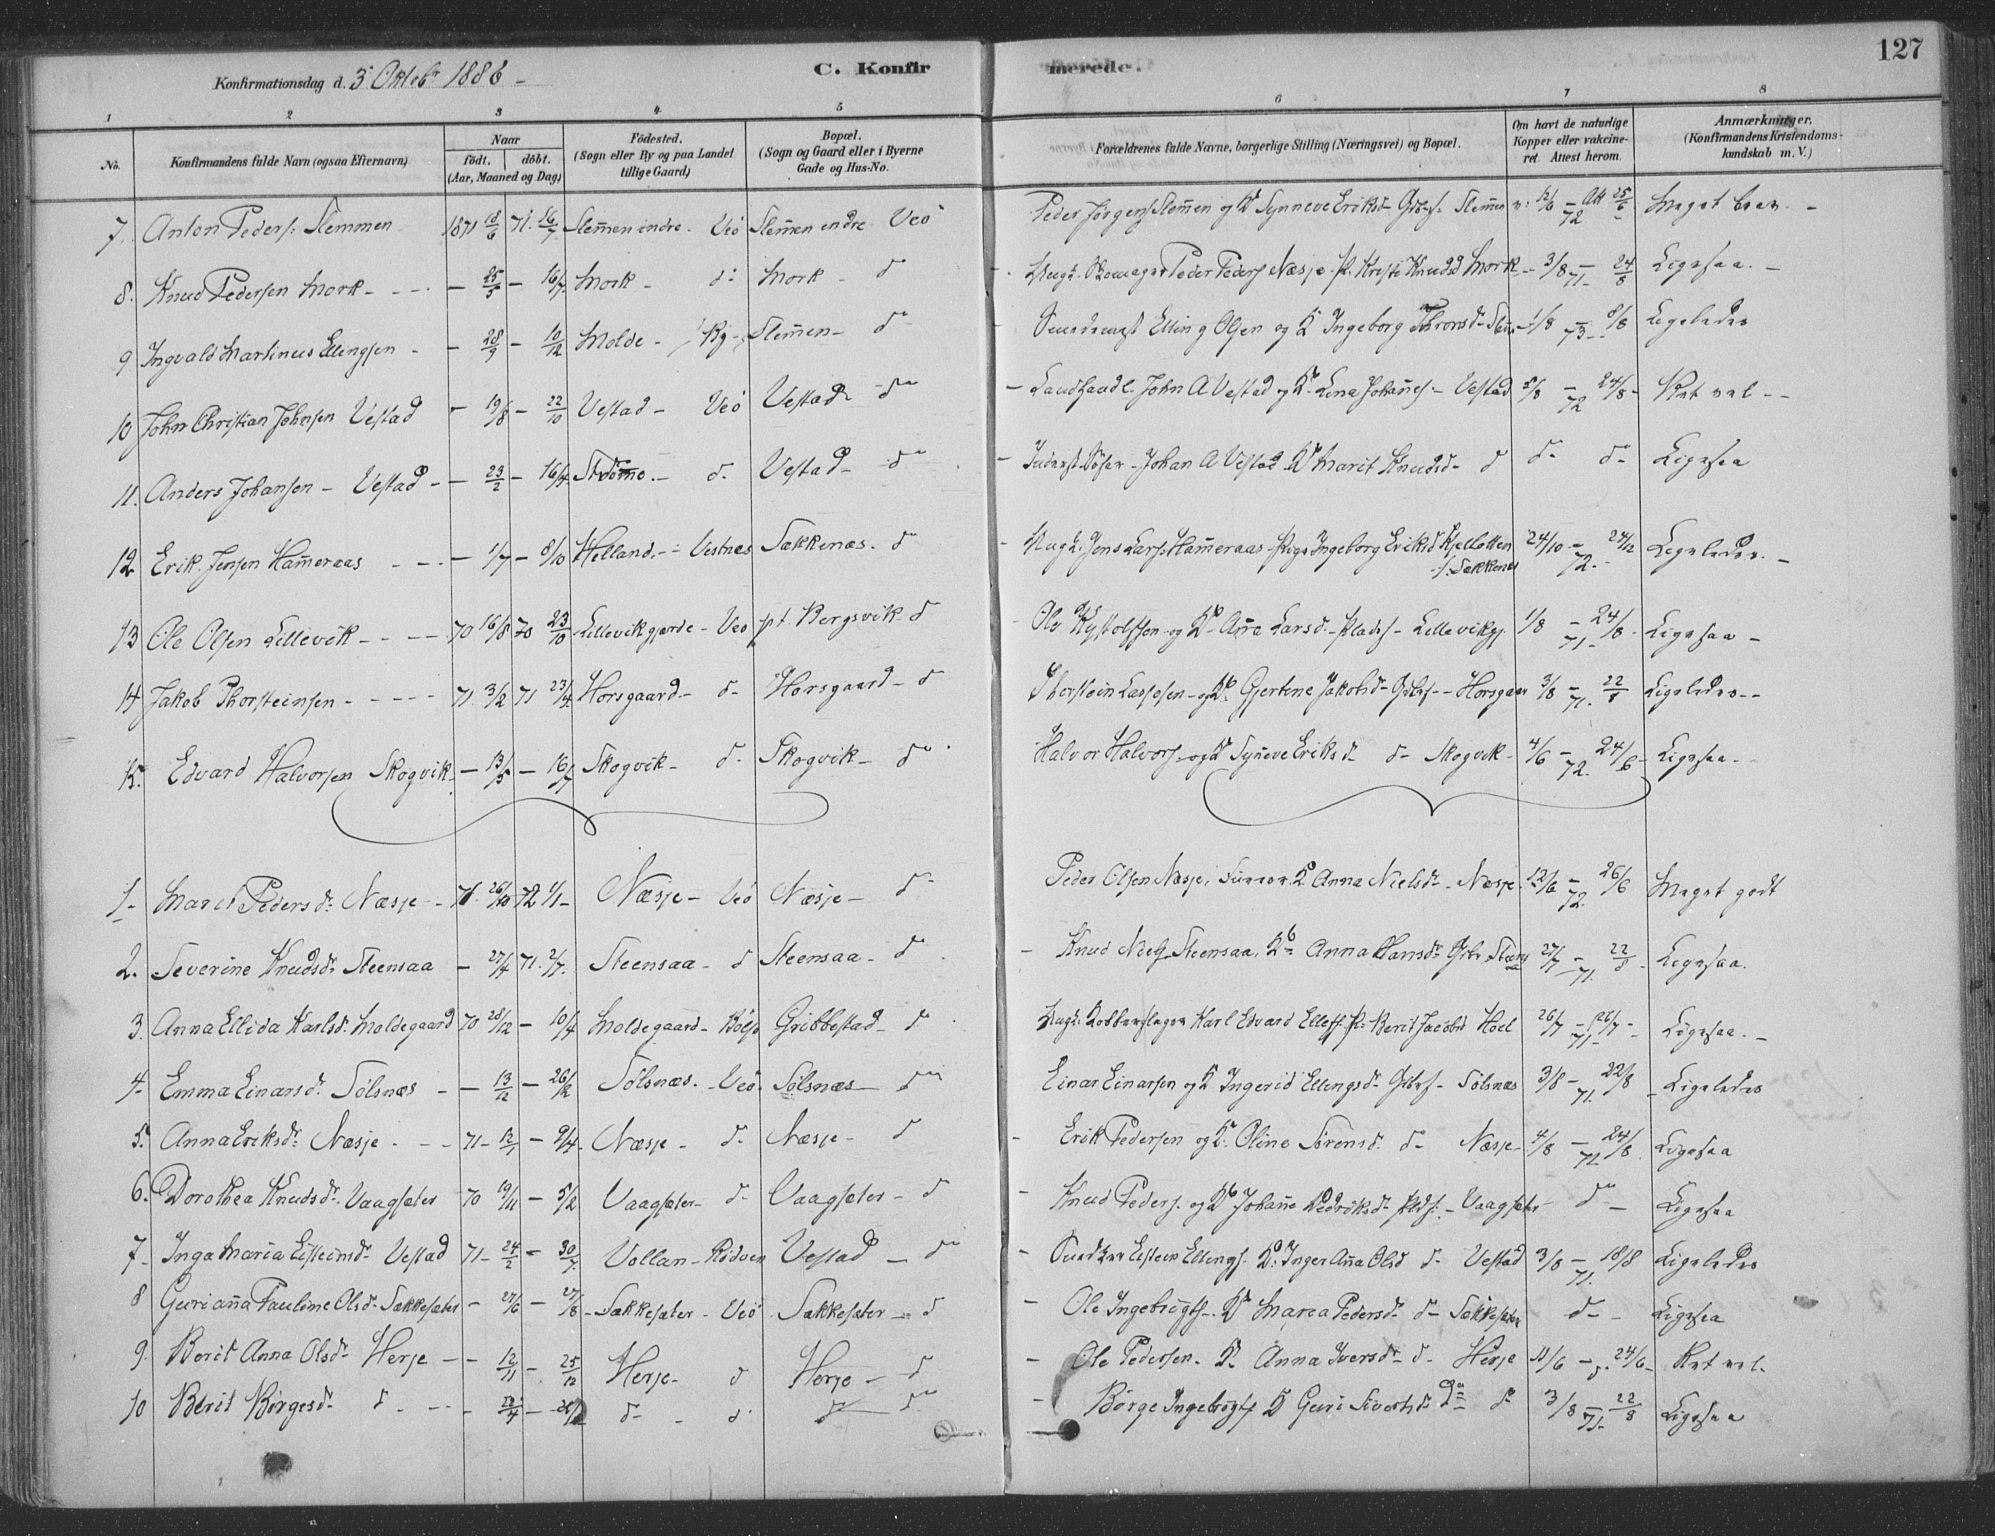 127
Konfirmationsdag d. 3 Oktobr 1886 -
C. Konfir merede.
1 2 3 4 5 6 7 8
No. Konfirmandens fulde Navn (ogsaa Efternavn) Naar født. døbt. (Aar, Maaned og Dag) Fødested. (Sogn eller By og paa Landet tillige Gaard) Bopæl. (Sogn og Gaard eller i Byerne Gade og Hus-No. Forældrenes fulde Navne, borgerlige Stilling (Næringsvei) og Bopæl. Om havt de naturlige Kopper eller vakcineret. Attest herom. Anmærkninger. (Konfirmandens Kristendomskundskab m. V.)
7. Anton Peders. Slemmen 1871 18/6 71. 16/7 Slem̄en indre - Veö Slem̄en indre Veö Peder Jörgens Slem̄en og K Synneve Eriksd Gbr. Slemmen v. 12/6 - 72 Att 25/6 Meget brav. -
8. Knud Pedersen Mork - - - - 25/5 - 16/7 Mork - do Mork - do Uægt. Skomager Peder Peders Næsje P. Kristi Knudsd Mork - 3/8 - 71 - 24/8 Ligesaa. -
9 Ingvald Martinus Ellingsen - - 28/9 - 10/12 Molde - By - Slem̄en - do Smedmest Elling Olsen og K Ingeborg Thronsd - 1/8 - 73 - 8/8 Ligeledes
10 John Christian Johnsen Vestad - 19/8 - 22/10 Vestad - Veö Vestad - do - Landhandl. John A Vestad og K. Lena Johan̄es - Vestad 5/8 - 72 24/8 - Ret vel - -
11. Anders Johansen - Vestad - - 23/2 - 16/4 Strömme. - d. Vestad - do - Inderst Johan A Vestad K Marit Knudsd - d d - d - Ligesaa
12 Erik Jensen Ham̄eraas - - - - 1/7 - 8/10 Helland. - Vestnæs Sækkenæs. do - Uægt. Jens Lars. Ham̄eraas - Pige Ingeborg Eriksd Kjelbotten /. Sækkenæs 24/10 - 72. - 24/12 Ligeledes. -
13 Ole Olsen Lillevik - - - - 70 16/8 70 23/10 Lillevikgjerde - Veö pt Bergsvik - d - Ole - og K - An̄e Larsd. - Plads. - Lillevikgj. 1/8 - 71 - 24/8. Ligesaa -
14 Jakob Thorsteinsen - - - - 71. 3/2 71 23/4 Horsgaard - d - Horsgaard - d Thorstein Lassesen - og K. Gjertine Jakobsd - Gbr. - - Horsgaar 3/8 - 71. 22/8 Ligeledes - -
15. Edvard Halvorsen Skogvik - - 13/5 - 16/7 Skogvik - d. Skogvik - do Halvor Halvors. og K Synneve Eriksd d - Skogvik - 4/6 - 72. 24/6 - Ligesaa. -
1. Marit Pedersdr. Næsje - 71. 26/10 72 1/1 - Næsje - Veö Næsje - do Peder Olsen Næsje, K Anna Nielsdr - Næsje 12/6 - 72. 26/6 Meget godt
2. Severine Knudsdr Steensaa - 27/4 71. 2/7. Steensaa - d Steensaa - do - Knud Niels Steensaa, K Anna Hansdr Gbr Steens 27/7 - 71. 22/8 - Ligesaa.
3. Anna Ellida Karlsd. Moldegaard 70 28/12 - 10/4 Moldegaard - Bolsö Gribbestad - do Uægt. Kobberslager Karl Edvard Ellefs. P. Berit Jacobsd Hoel 26/7 - 71 - 26/7 - Ligesaa. -
4. Emma Einarsdr. Sölsnæs - - 13/12 - 26/2 Sölsnæs. - Veö. Sölsnæs - do Einar Einarsen og K Ingerid Ellingsd - Gbr - Sölsnæs 3/8 - 71. 22/8 - Ligeledes
5. Anna Eriksdr. Næsje. - - 71 - 12/1 - 9/4. Næsje - d - Næsje - d - Erik Pedersen og K. Oline Sörensd. d - Næsje - 4/8 - 71 24/8. Ligesaa
6. Dorothea Knudsdr. Vaagsæter 70 19/11 - 5/2 Vaagsæter - d - Vaagsæter - d - Knud Peders. og K Johan̄e Didriksdr Plds. - Vaagsæter - do - Ligesaa
7 - Inga Maria Eisteinsdr Vestad 71 - 24/2 - 30/7 Vollan - Rödven Vestad - do - Eistein Ellings. K. Inger An̄a Olsd d - Vestad 3/8 - 71. 18/8 Ligeledes
8 Gurian̄a Pauline Olsd. Sækkesæter - 27/6 - 27/8 - Sækkesæter - Veö Sækkesæter - d - Ole Ingebrigts. - K Marea Pedersdr d - Sækkesæter d - - Ligesaa
9. Berit Anna Olsdr Herje - - 12/11 - 25/12 Herje - d Herje - d - Ole Pedersen. K Anna Iversdr - d - Herje 11/6 - d. 24/6 - Ret vel.
10 Berit Börgesd. d. - - - - d - - d d do - Börge Ingebrigts K Guri Sivertsd Do d 3/8 - 71 - 22/8 Ligesaa